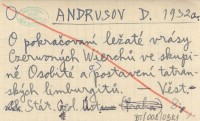 O ANDRUSOV D. 1932a.
O pokračování ležaté vrásy
Czerwonych Wierchů ve skupi-
ně Osobité a postavení tatran-
ských limburgitů. Věst.
Stát. Geol. Úst. 8,